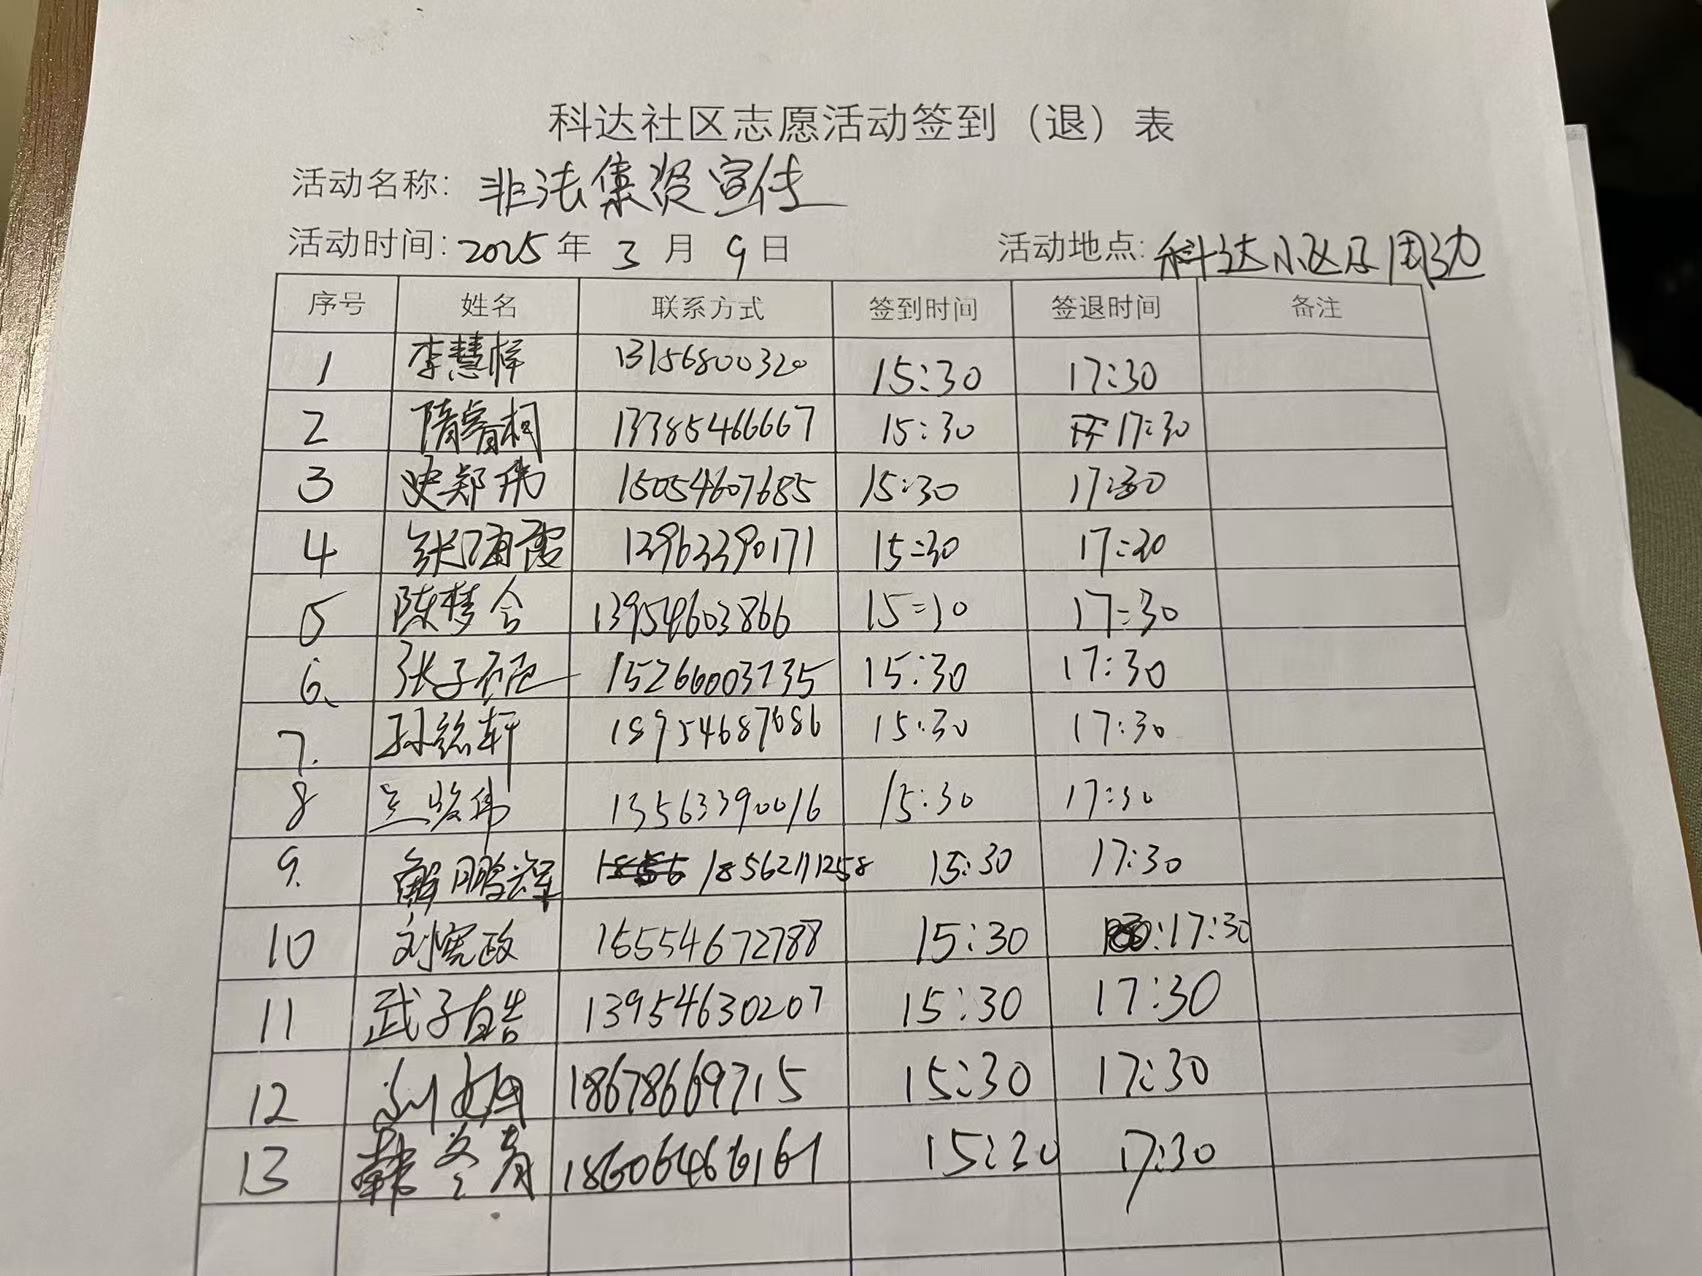 科达社区志愿活动签到（退）表
活动名称：非法集资宣传
活动时间：2025年3月9日 活动地点：科达小区及周边
序号 姓名 联系方式 签到时间 签退时间 备注
1 李慧梓 13156800320 15:30 17:30
2 隋睿桐 13385466667 15:30 17:30
3 史郑伟 15054607685 15:30 17:30
4 张 13963390171 15:30 17:30
5 陈梦含 13954603866 15:30 17:30
6. 张子 15266003735 15:30 17:30
7. 孙铭轩 18954687686 15:30 17:30
8 兰骏伟 13563390016 15:30 17:30
9. 解鹏辉 18562111258 15:30 17:30
10 刘宪政 15554672788 15:30 17:30
11 武子皓 13954630207 15:30 17:30
12 刘娟 18678669715 15:30 17:30
13 韩冬青 18606466161 15:30 17:30